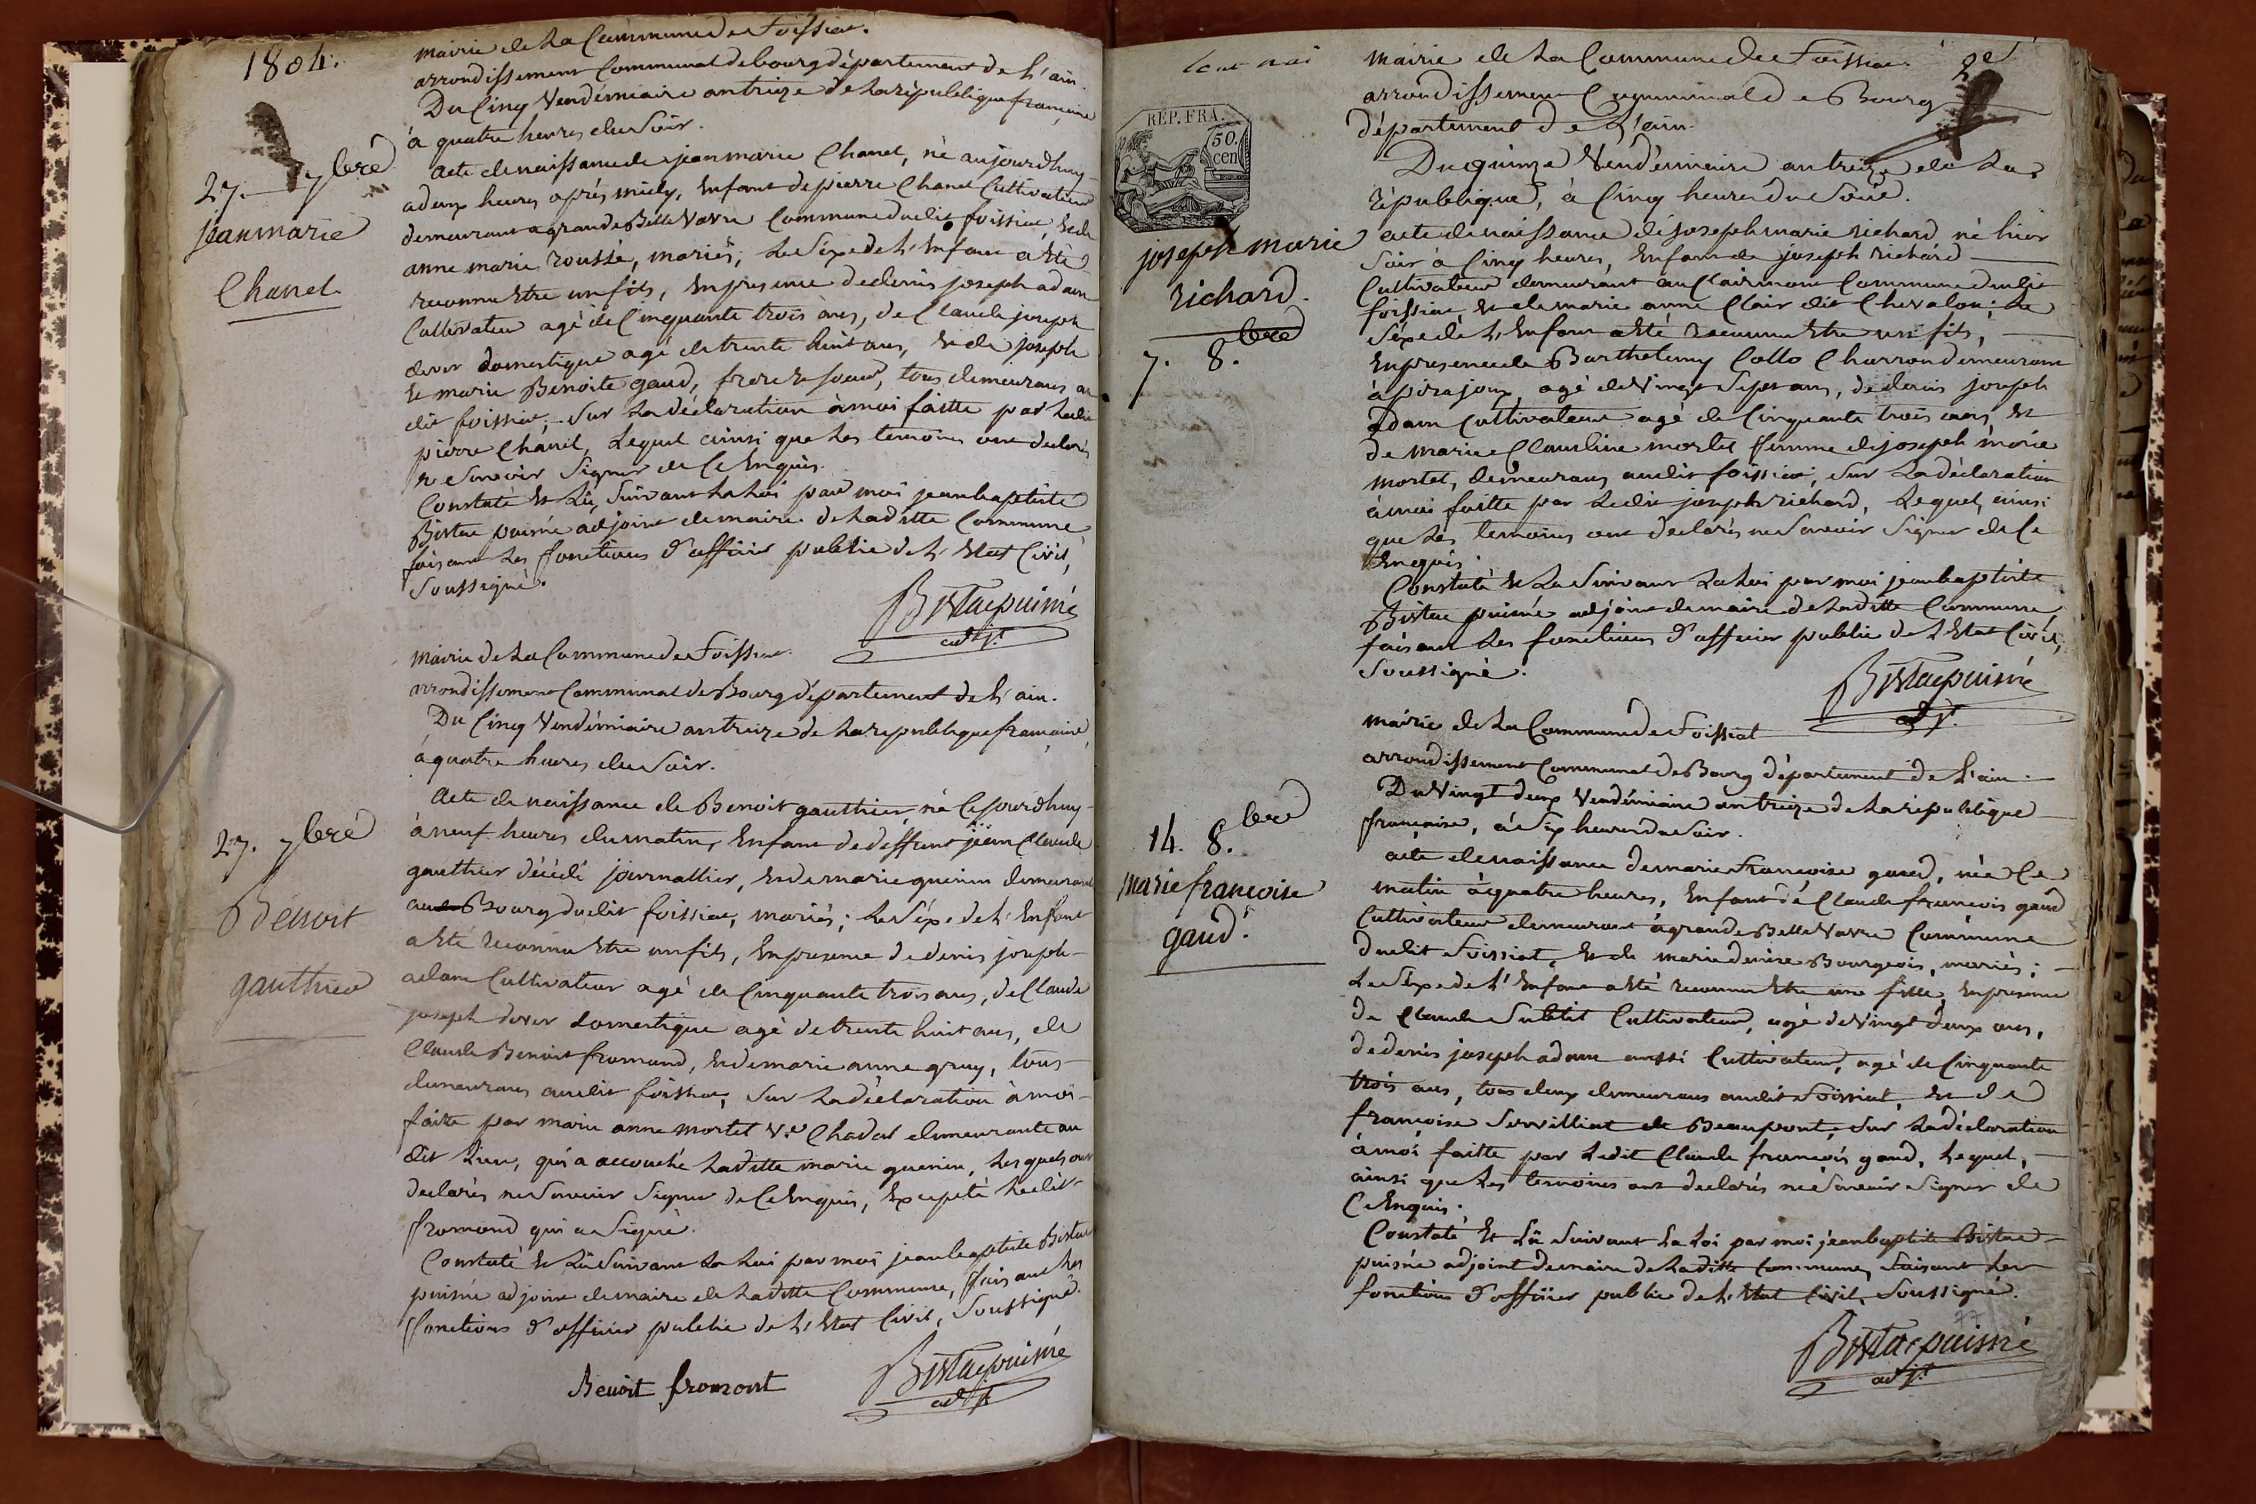 1804.
mairie de la Commune de Foissiat.
arrondissement Communal de bourg département de l'ain.
Du Cinq Vendémiaire an treize de la république francaise
à quatre heures du Soir.
27. 7bre
jeanmarie
Chanel
acte de naissance de jean marie Chanel, né aujourdhuy
a deux heures après midy, Enfant de pierre Chanel Cultivateur
demeurant a grande Belle Vavre Commune dudit foissiat, et de
anne marie rousse, mariés, le Séxe de l'Enfant a Eté
reconnu Etre un fils, En presence de denis joseph adam
Cultivateur agé de Cinquante trois ans, de Claude joseph
dover domestique agé de trente huit ans, et de joseph
et marie Benoite gaud, frere et soeur, tous demeurans au
dit foissiat, Sur la déclaration à moi faitte par ledit
pierre Chanel, Lequel ainsi que les temoins ont declarés
ne Savoir Signer de Ce Enquis.
Constaté et Lû, Suivant la Loi par moi jean baptiste
Bistac puisné adjoint de maire de laditte Commune
faisant les fonctions d'officier public de l'Etat Civil,
Soussigné.
Bistac puisné
adjt.
mairie de la Commune de Foissiat.
arrondissement Communal de Bourg département de l'ain.
Du Cinq Vendémiaire an treize de la république francaise
à quatre heures du Soir.
27. 7bre
Benoit
gauthier
Acte de naissance de Benoit gauthier, né Cejourdhuy
à neuf heures du matin, Enfant de deffunt jean Claude
gauthier décédé journallier, et de marie guenin demeurant
au Bourg dudit foissiat, mariés; le Séxe de l'Enfant
a Eté reconnu Etre un fils, En presence de denis joseph
adam Cultivateur agé de Cinquante trois ans, de Claude
joseph dover domestique agé de trente huit ans, de
Claude Benoit fromond, et de marie anne gruy, tous
demeurans audit foissiat, Sur la déclaration à moi
faitte par marie anne mortel Ve Chadal demeurante au
dit lieu, qui a accouché laditte marie guenin, lesquels ont
declarés ne Savoir Signer de Ce Enquis, Excepté ledit
fromond qui a Signé.
Constaté et Lû Suivant la Loi par moi jean baptiste Bistac
puisné adjoint de maire de laditte Commune, faisant les
fonctions d'officier public de l'Etat Civil, Soussigné.
Benoit fromont
Bistac puisné
adjt
RÉP. FRA.
50.
cen
mairie de la Commune de Foissiat
arrondissement Communal de Bourg
département de l'ain.
Du quinze Vendémiaire an treize de la
république, à Cinq heures du Soir.
joseph marie
richard.
7. 8.bre
acte de naissance de joseph marie richard né hier
Soir à Cinq heures, Enfant de joseph richard
Cultivateur demeurant au Clairmont Commune dudit
foissiat, et de marie anne Clair dit Chevalon; le
Séxe de l'Enfant a Eté reconnu Etre un fils,
En presence de Barthelemy Collo Charron demeurant
à pirajoux, agé de Vingt Sept ans, de denis joseph
adam Cultivateur agé de Cinquante trois ans, et
de marie Claudine morlet femme de joseph marie
mortel, demeurans audit foissiat, Sur la déclaration
à moi faitte par ledit joseph richard, Lequel, ainsi
que les temoins ont declarés ne Savoir Signer de Ce
Enquis.
Constaté et Lû Suivant la Loi par moi jean baptiste
Bistac puisné adjoint de maire de laditte Commune
faisant les fonctions d'officier public de l'Etat Civil,
Soussigné.
Bistac puisné
adjt.
mairie de la Commune de Foissiat
arrondissement Communal de Bourg département de l'ain.
Du Vingt deux Vendémiaire an treize de la république
francaise, à Six heures du Soir.
14. 8.bre
marie francoise
gaud.
acte de naissance de marie Francoise gaud, née Ce
matin à quatre heures, Enfant de Claude francois gaud
Cultivateur demeurant à grande Belle Vavre Commune
dudit Foissiat, et de marie denise Bourgeois, mariés;
Le Séxe de l'Enfant a Eté reconnu Etre une fille, En presence
de Claude Subtil Cultivateur, agé de Vingt deux ans,
de denis joseph adam aussi Cultivateur, agé de Cinquante
trois ans, tous deux demeurans audit Foissiat, et de
francoise Servilliat de Beaupont, Sur la déclaration
à moi faitte par ledit Claude francois gaud, Lequel,
ainsi que les temoins ont declarés ne Savoir Signer de
Ce Enquis.
Constaté et Lû Suivant la Loi par moi jean baptiste Bistac
puisné adjoint de maire de laditte Commune, faisant les
fonctions d'officier public de l'Etat Civil, Soussigné.
Bistac puisné
adjt